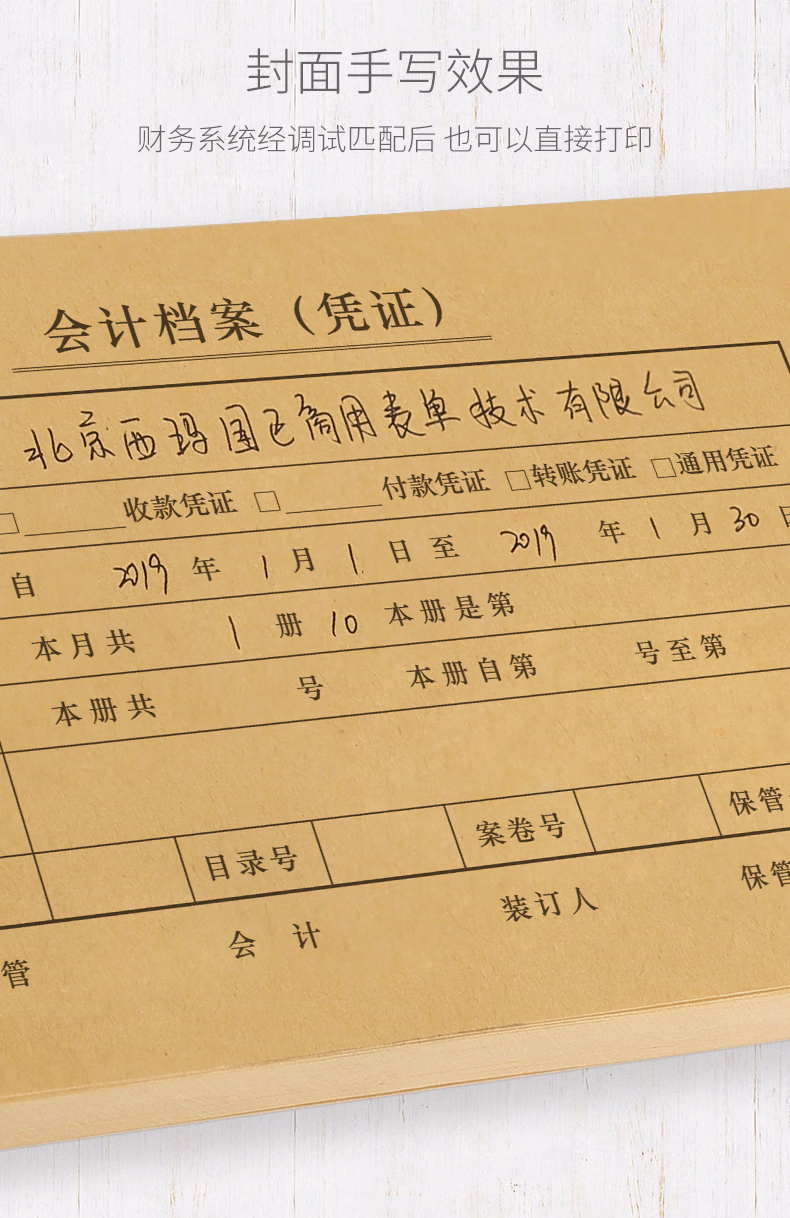 封面手写效果
财务系统经调试匹配后 也可以直接打印
会计档案（凭证）
北京西玛国已商用表单技术有限公司
□______收款凭证 □______付款凭证 □转账凭证 □通用凭证
自 2019 年 1 月 1 日至 2019 年 1 月 30 日
本月共 1 册 10 本册是第
本册共 号 本册自第 号至第
目录号 案卷号 保管
管 会 计 装订人 保管